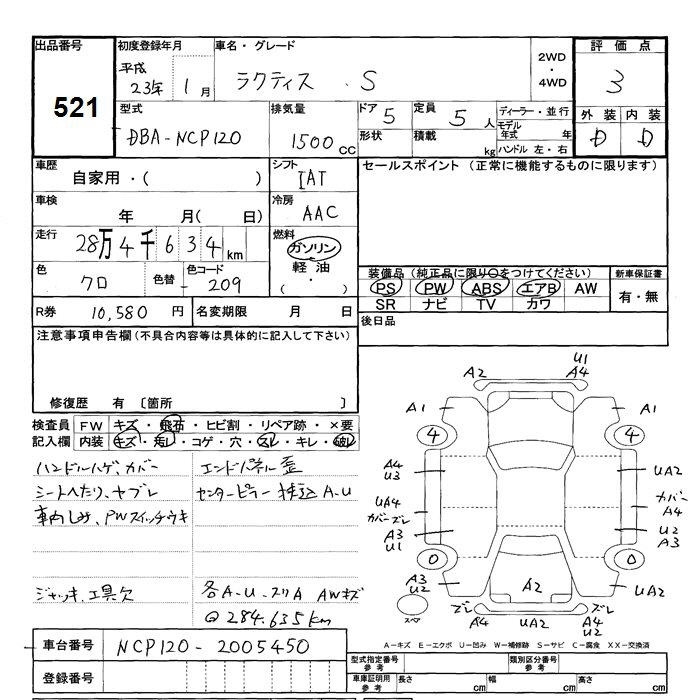 出品番号
521
初度登録年月
平成
23年 1月
車名・グレード
ラクティス . S
2WD
・
4WD
評価点
3
型式
DBA-NCP120
排気量
1500 CC
ドア 5
形状
定員 5 人
積載 kg
ディーラー・並行
モデル年式 年
ハンドル 左・右
外装
D
内装
D
車歴
自家用・( )
シフト
IAT
セールスポイント (正常に機能するものに限ります)
車検
年 月( 日)
冷房
AAC
走行
28万4千634km
燃料
ガソリン
軽油
( )
色
クロ
色替
色コード
209
装備品(純正品に限り○をつけてください)
PS PW ABS エアB AW
SR ナビ TV カワ
新車保証書
有・無
R券 10,580 円
名変期限 月 日
後日品
注意事項申告欄(不具合内容等は具体的に記入して下さい)
修復歴 有 〔箇所 〕
検査員記入欄
FW キズ・飛石・ヒビ割・リペア跡・×要
内装 キズ・汚レ・コゲ・穴・スレ・キレ・破レ
ハンドルハゲ カバー
シートヘたり、ヤブレ
車内しみ、PWスイッチウキ
ジャッキ、工具欠
エンドパネル歪
センターピラー 押込 A-U
各A-U スリA AWキズ
@ 284.635km
U1
A2 A4
A1 A1
4 4
A4
U3
UA2
UA4
カバーズレ
カバー
A4
A3
U1
U2
A3
0 0
A3
U2
A2
UA2
スペア
ズレ
A4
ズレ
A4
U2
A−キズ E−エクボ U−凹み W−補修跡 S−サビ C−腐食 XX−交換済
車台番号 NCP120-2005450
登録番号
型式指定番号
参考
類別区分番号
参考
車庫証明用
参考
長さ cm
幅 cm
高さ cm